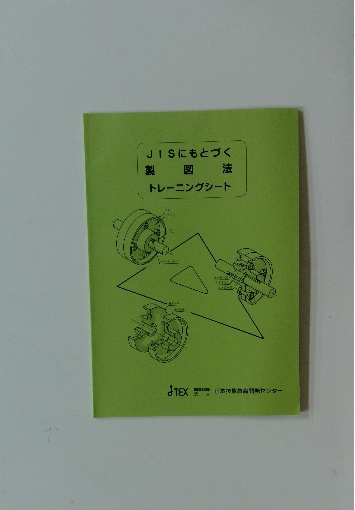 JISにもとづく
製図法
トレーニングシート
JTEX 日本技能教育開発センター